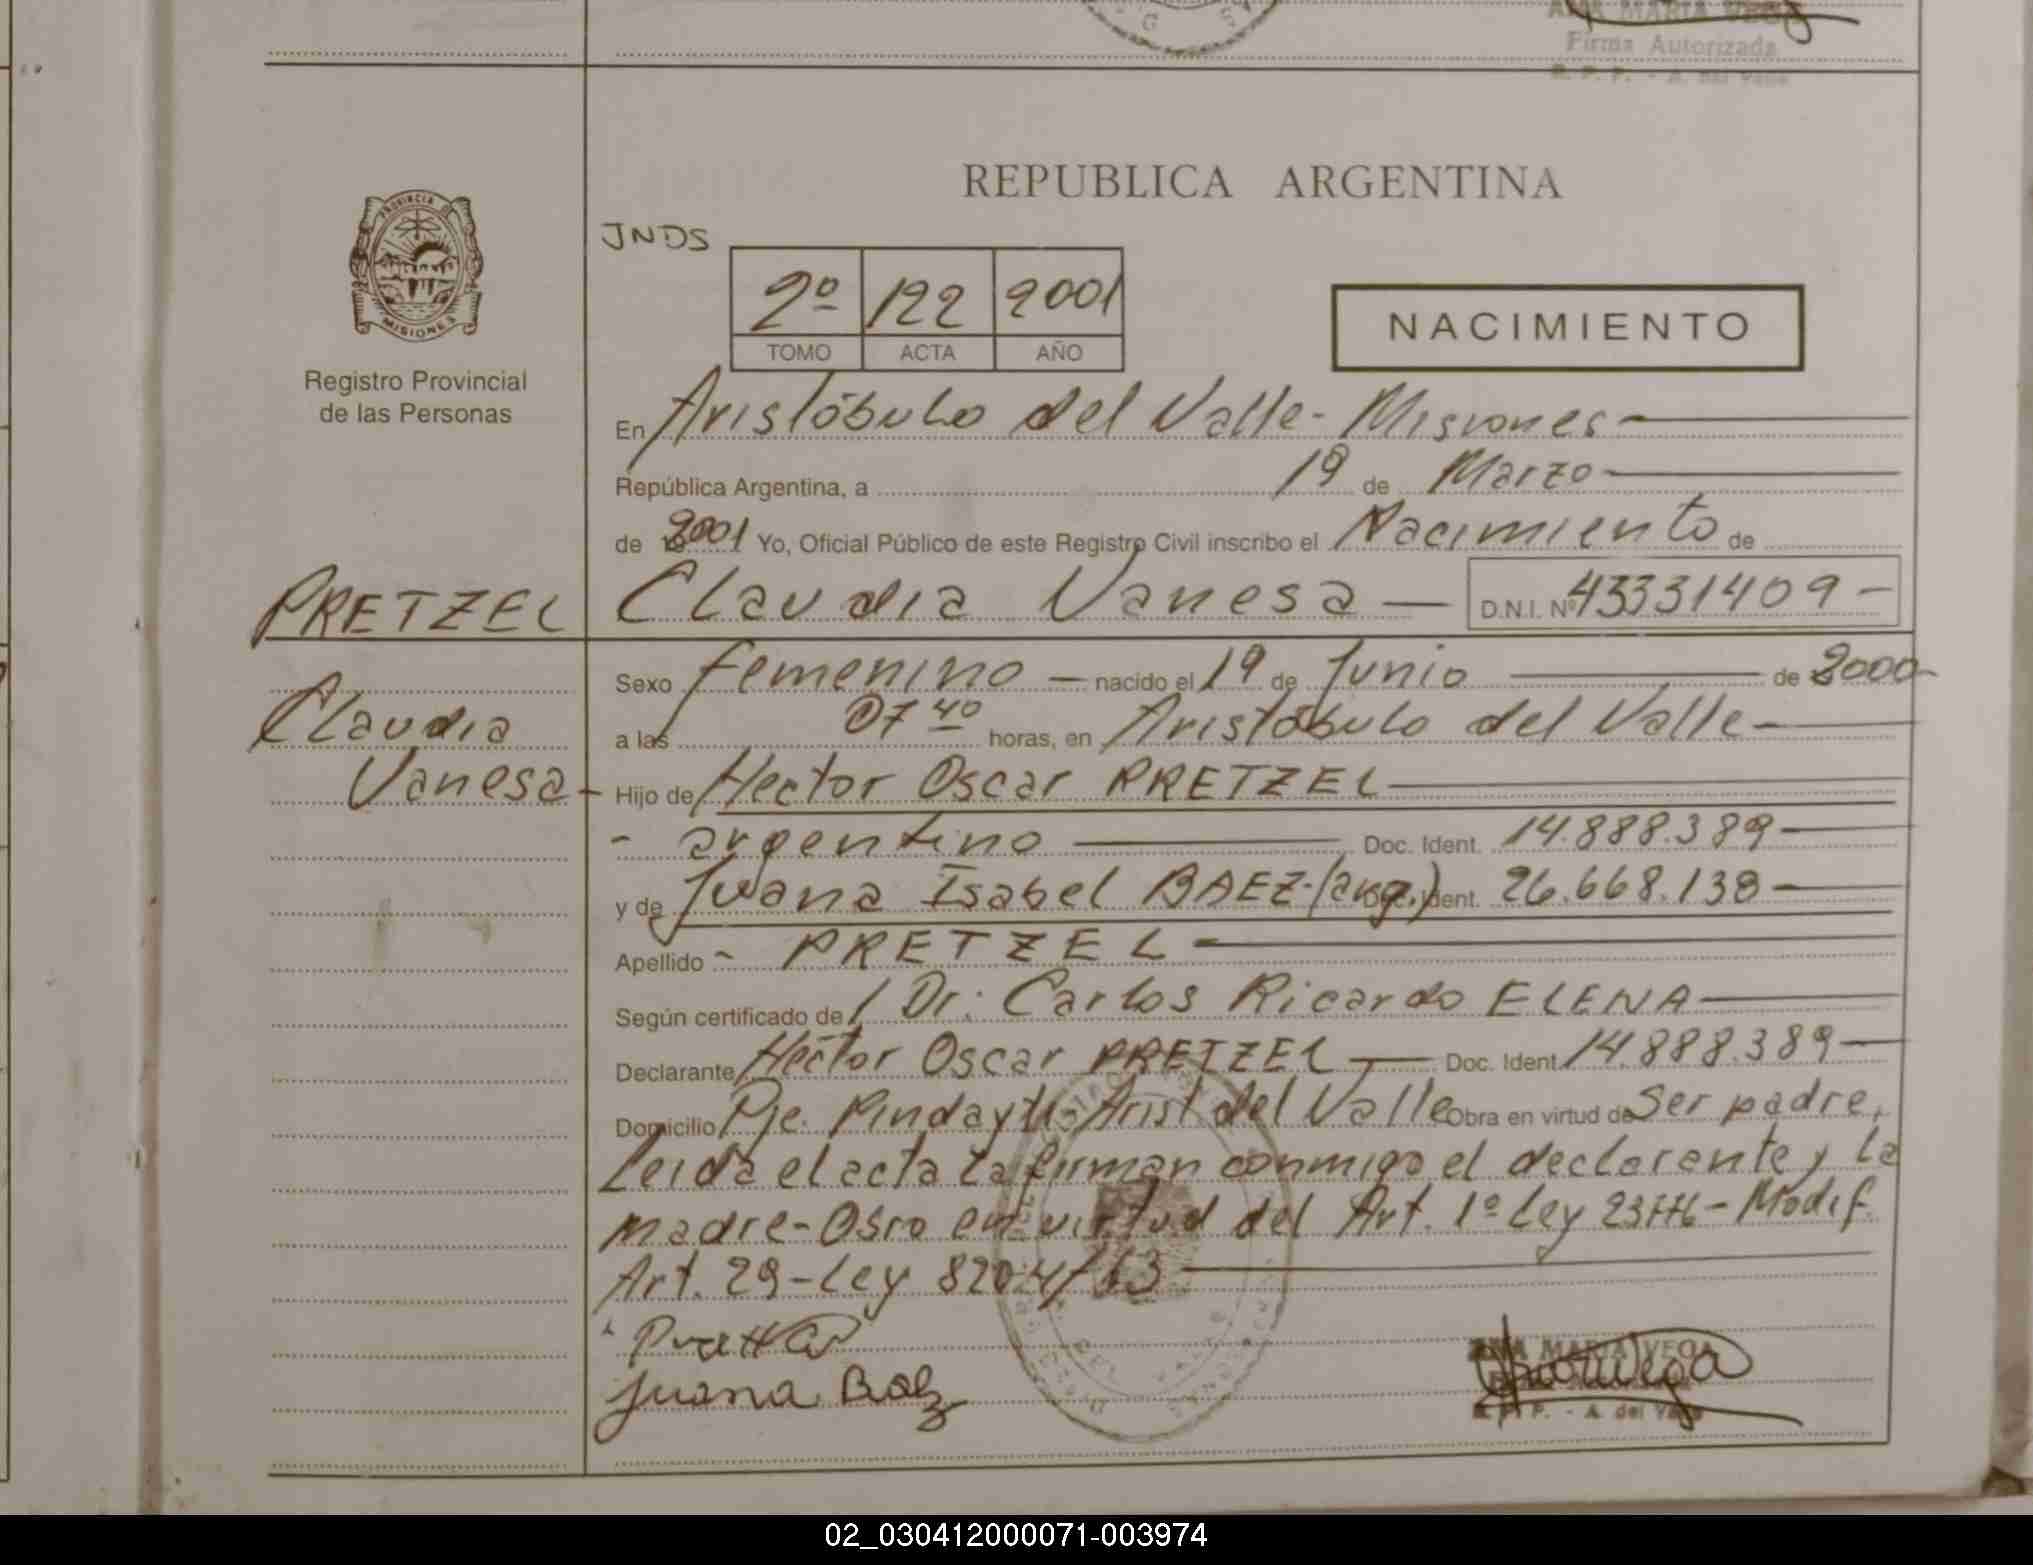 ANA MARIA VEGA
Firma Autorizada
R. P. P. - A. del Valle
PROVINCIA DE
MISIONES
Registro Provincial
de las Personas
REPUBLICA ARGENTINA
JNDS
2º 122 2001
TOMO ACTA AÑO
NACIMIENTO
En Aristóbulo del Valle - Misiones
República Argentina, a 19 de Marzo
de 2001 Yo, Oficial Público de este Registro Civil inscribo el Nacimiento de
PRETZEL Claudia Vanesa — D.N.I. Nº 43331409 -
Sexo Femenino — nacido el 19 de Junio de 2000-
Claudia a las 07 40 horas, en Aristóbulo del Valle
Vanesa - Hijo de Hector Oscar PRETZEL
- argentino Doc. Ident. 14.888.389
y de Juana Isabel BAEZ-(arg.) Doc. Ident. 26.668.138
Apellido - PRETZEL
Según certificado de / Dr: Carlos Ricardo ELENA
Declarante Héctor Oscar PRETZEL Doc. Ident. 14.888.389
Domicilio Pje. Pindaytí- Arist del Valle Obra en virtud de Ser padre,
Leida el acta la firman conmigo el declarante y la
madre-Obro en virtud del Art. 1º Ley 23776 - Modif.
Art. 29 - Ley 8204/63
Juana Baez
ANA MARIA VEGA
R. P. P. - A. del Valle
02_030412000071-003974